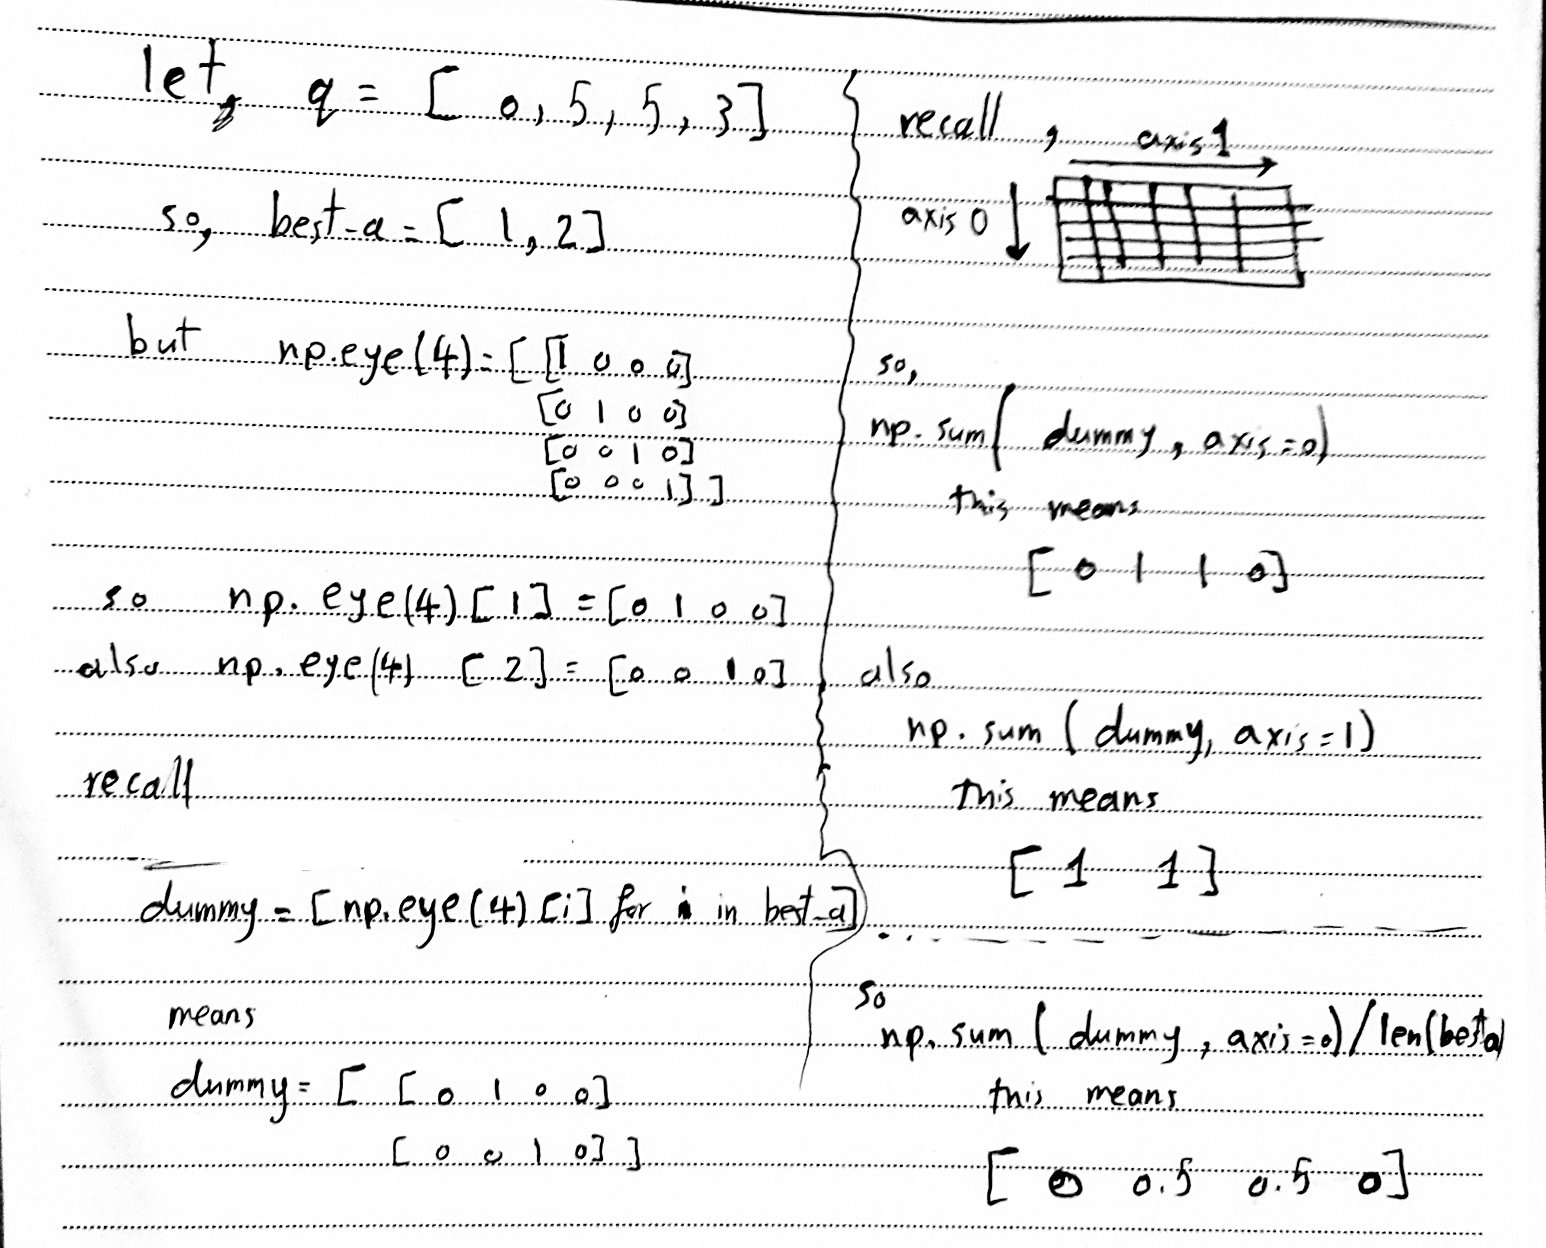 let, q = [ 0, 5, 5, 3]
so, best_a = [ 1, 2]
but np.eye(4) = [ [1 0 0 0]
[0 1 0 0]
[0 0 1 0]
[0 0 0 1] ]
so np. eye(4) [ 1 ] = [0 1 0 0]
also np. eye(4) [ 2] = [0 0 1 0]
recall
dummy = [np.eye(4)[i] for i in best_a]
means
dummy = [ [ 0 1 0 0]
[ 0 0 1 0] ]
recall ,
axis 1
axis 0
so,
np. sum( dummy, axis=0)
this means
[ 0 1 1 0]
also
np. sum ( dummy, axis = 1)
This means
[ 1 1 ]
so
np. sum ( dummy, axis = 0) / len(best a)
this means
[ 0 0.5 0.5 0]